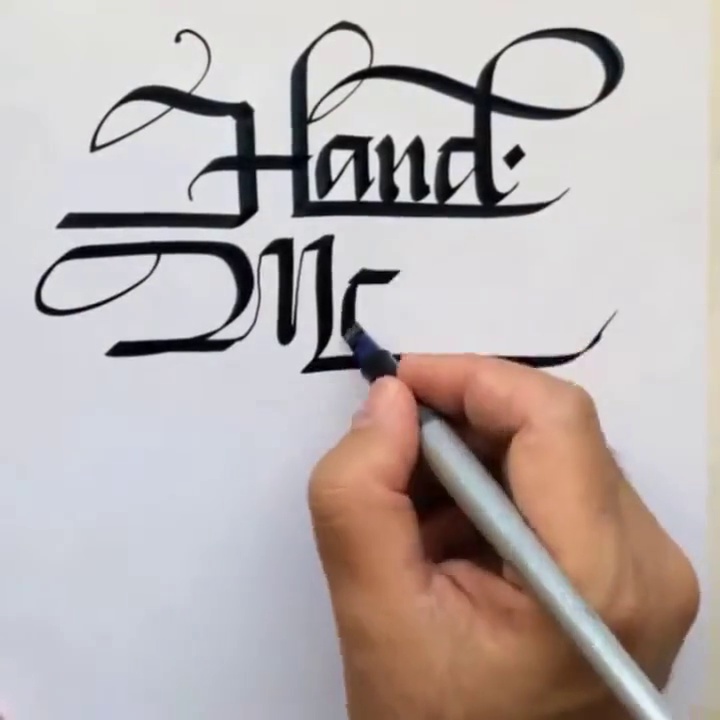 Hand·
M